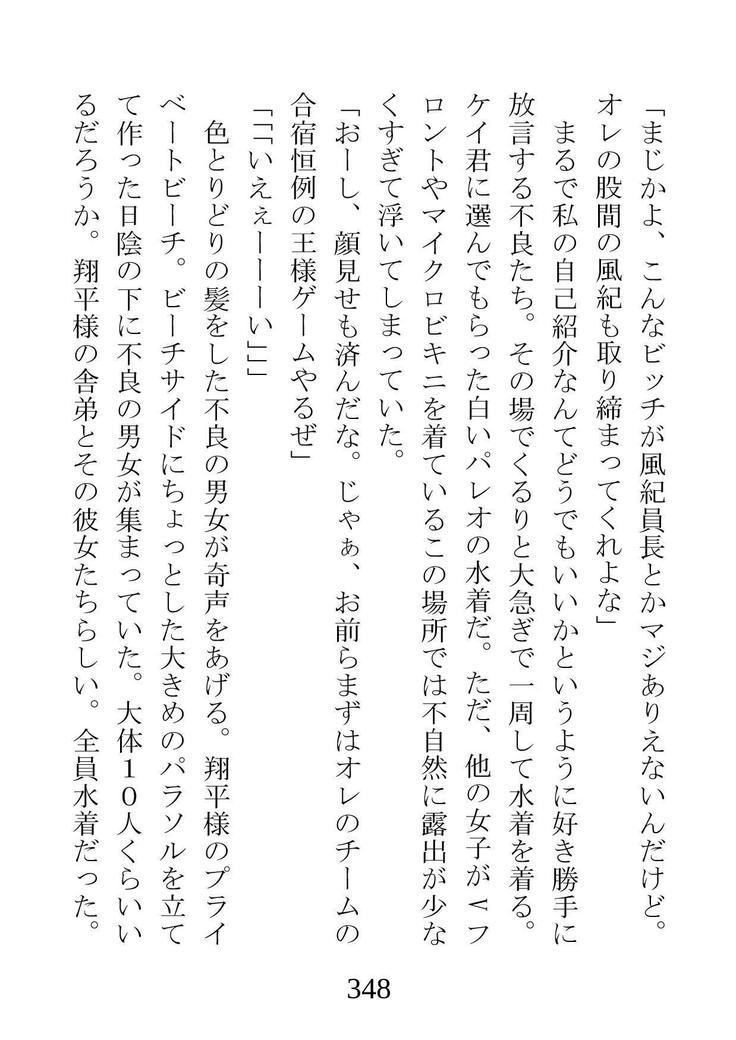 「まじかよ、こんなビッチが風紀員長とかマジありえないんだけど。
オレの股間の風紀も取り締まってくれよな」
　まるで私の自己紹介なんてどうでもいいかというように好き勝手に
放言する不良たち。その場でくるりと大急ぎで一周して水着を着る。
ケイ君に選んでもらった白いパレオの水着だ。ただ、他の女子がVフ
ロントやマイクロビキニを着ているこの場所では不自然に露出が少な
くすぎて浮いてしまっていた。
「おーし、顔見せも済んだな。じゃぁ、お前らまずはオレのチームの
合宿恒例の王様ゲームやるぜ」
「「「いえぇーーーい」」」
　色とりどりの髪をした不良の男女が奇声をあげる。翔平様のプライ
ベートビーチ。ビーチサイドにちょっとした大きめのパラソルを立て
て作った日陰の下に不良の男女が集まっていた。大体１０人くらいい
るだろうか。翔平様の舎弟とその彼女たちらしい。全員水着だった。
348